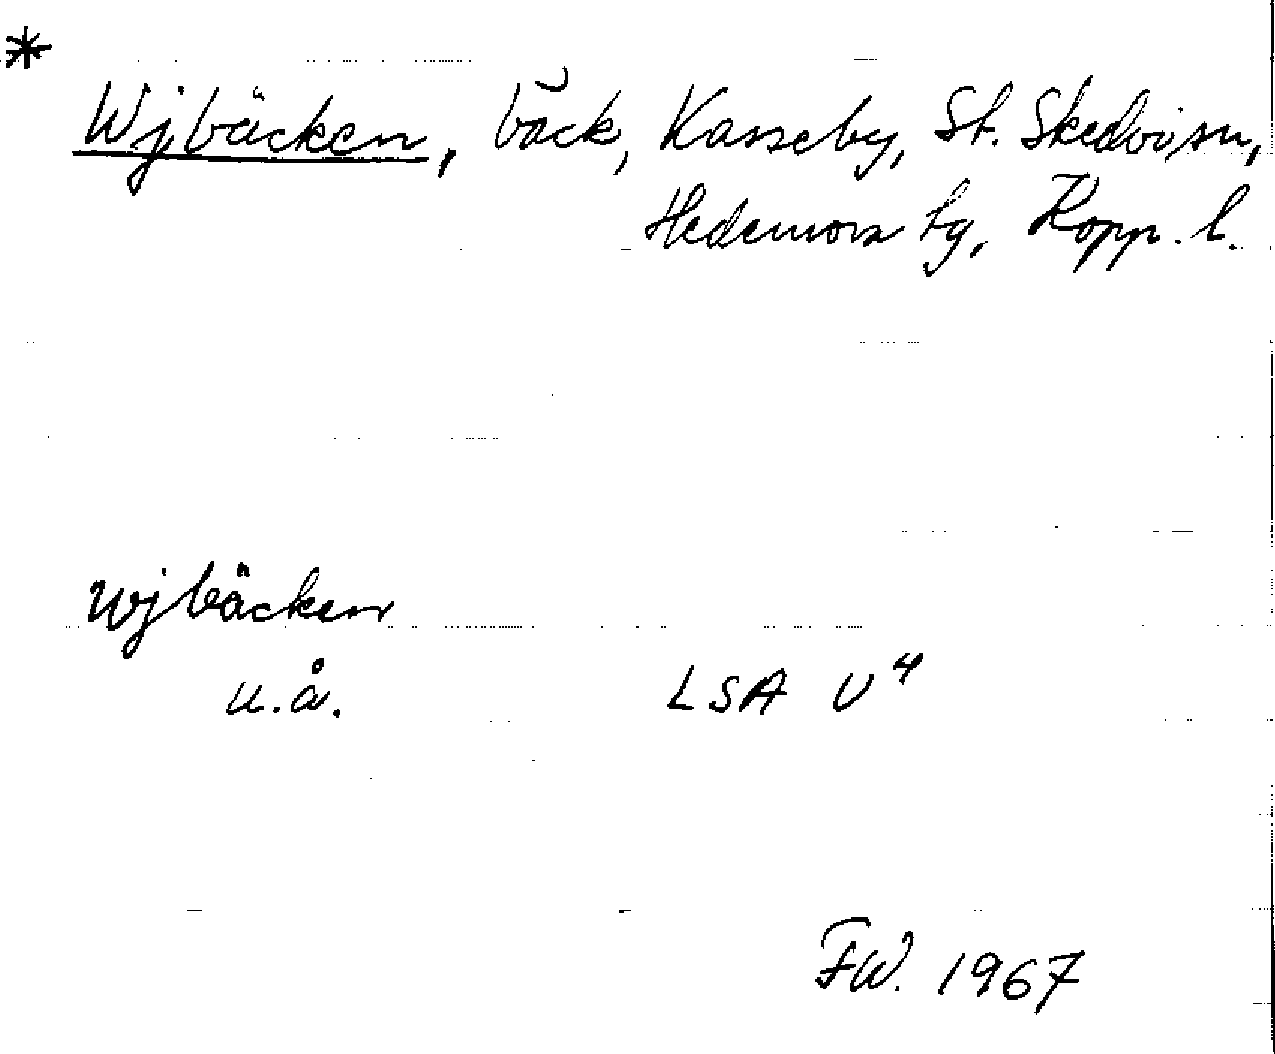 *
Wjbäcken, bäck, Kasseby, St. Skedvi sn,
Hedemora tg, Kopp. l.
Wjbäcken
u.å. LSA U4
FW. 1967